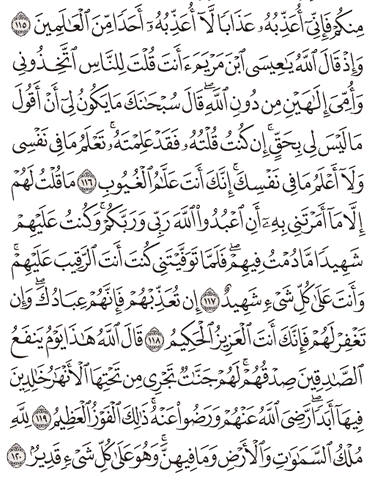 مِنكُمْ فَإِنِّىٓ أُعَذِّبُهُۥ عَذَابًا لَّآ أُعَذِّبُهُۥٓ أَحَدًا مِّنَ ٱلْعَٰلَمِينَ ١١٥
وَإِذْ قَالَ ٱللَّهُ يَٰعِيسَى ٱبْنَ مَرْيَمَ ءَأَنتَ قُلْتَ لِلنَّاسِ ٱتَّخِذُونِى
وَأُمِّىَ إِلَٰهَيْنِ مِن دُونِ ٱللَّهِ ۖ قَالَ سُبْحَٰنَكَ مَا يَكُونُ لِىٓ أَنْ أَقُولَ
مَا لَيْسَ لِى بِحَقٍّ ۚ إِن كُنتُ قُلْتُهُۥ فَقَدْ عَلِمْتَهُۥ ۚ تَعْلَمُ مَا فِى نَفْسِى
وَلَآ أَعْلَمُ مَا فِى نَفْسِكَ ۚ إِنَّكَ أَنتَ عَلَّٰمُ ٱلْغُيُوبِ ١١٦ مَا قُلْتُ لَهُمْ
إِلَّا مَآ أَمَرْتَنِى بِهِۦٓ أَنِ ٱعْبُدُوا۟ ٱللَّهَ رَبِّى وَرَبَّكُمْ ۚ وَكُنتُ عَلَيْهِمْ
شَهِيدًا مَّا دُمْتُ فِيهِمْ ۖ فَلَمَّا تَوَفَّيْتَنِى كُنتَ أَنتَ ٱلرَّقِيبَ عَلَيْهِمْ ۚ
وَأَنتَ عَلَىٰ كُلِّ شَىْءٍ شَهِيدٌ ١١٧ إِن تُعَذِّبْهُمْ فَإِنَّهُمْ عِبَادُكَ ۖ وَإِن
تَغْفِرْ لَهُمْ فَإِنَّكَ أَنتَ ٱلْعَزِيزُ ٱلْحَكِيمُ ١١٨ قَالَ ٱللَّهُ هَٰذَا يَوْمُ يَنفَعُ
ٱلصَّٰدِقِينَ صِدْقُهُمْ ۚ لَهُمْ جَنَّٰتٌ تَجْرِى مِن تَحْتِهَا ٱلْأَنْهَٰرُ خَٰلِدِينَ
فِيهَآ أَبَدًا ۚ رَّضِىَ ٱللَّهُ عَنْهُمْ وَرَضُوا۟ عَنْهُ ۚ ذَٰلِكَ ٱلْفَوْزُ ٱلْعَظِيمُ ١١٩ لِلَّهِ
مُلْكُ ٱلسَّمَٰوَٰتِ وَٱلْأَرْضِ وَمَا فِيهِنَّ ۚ وَهُوَ عَلَىٰ كُلِّ شَىْءٍ قَدِيرٌۢ ١٢٠